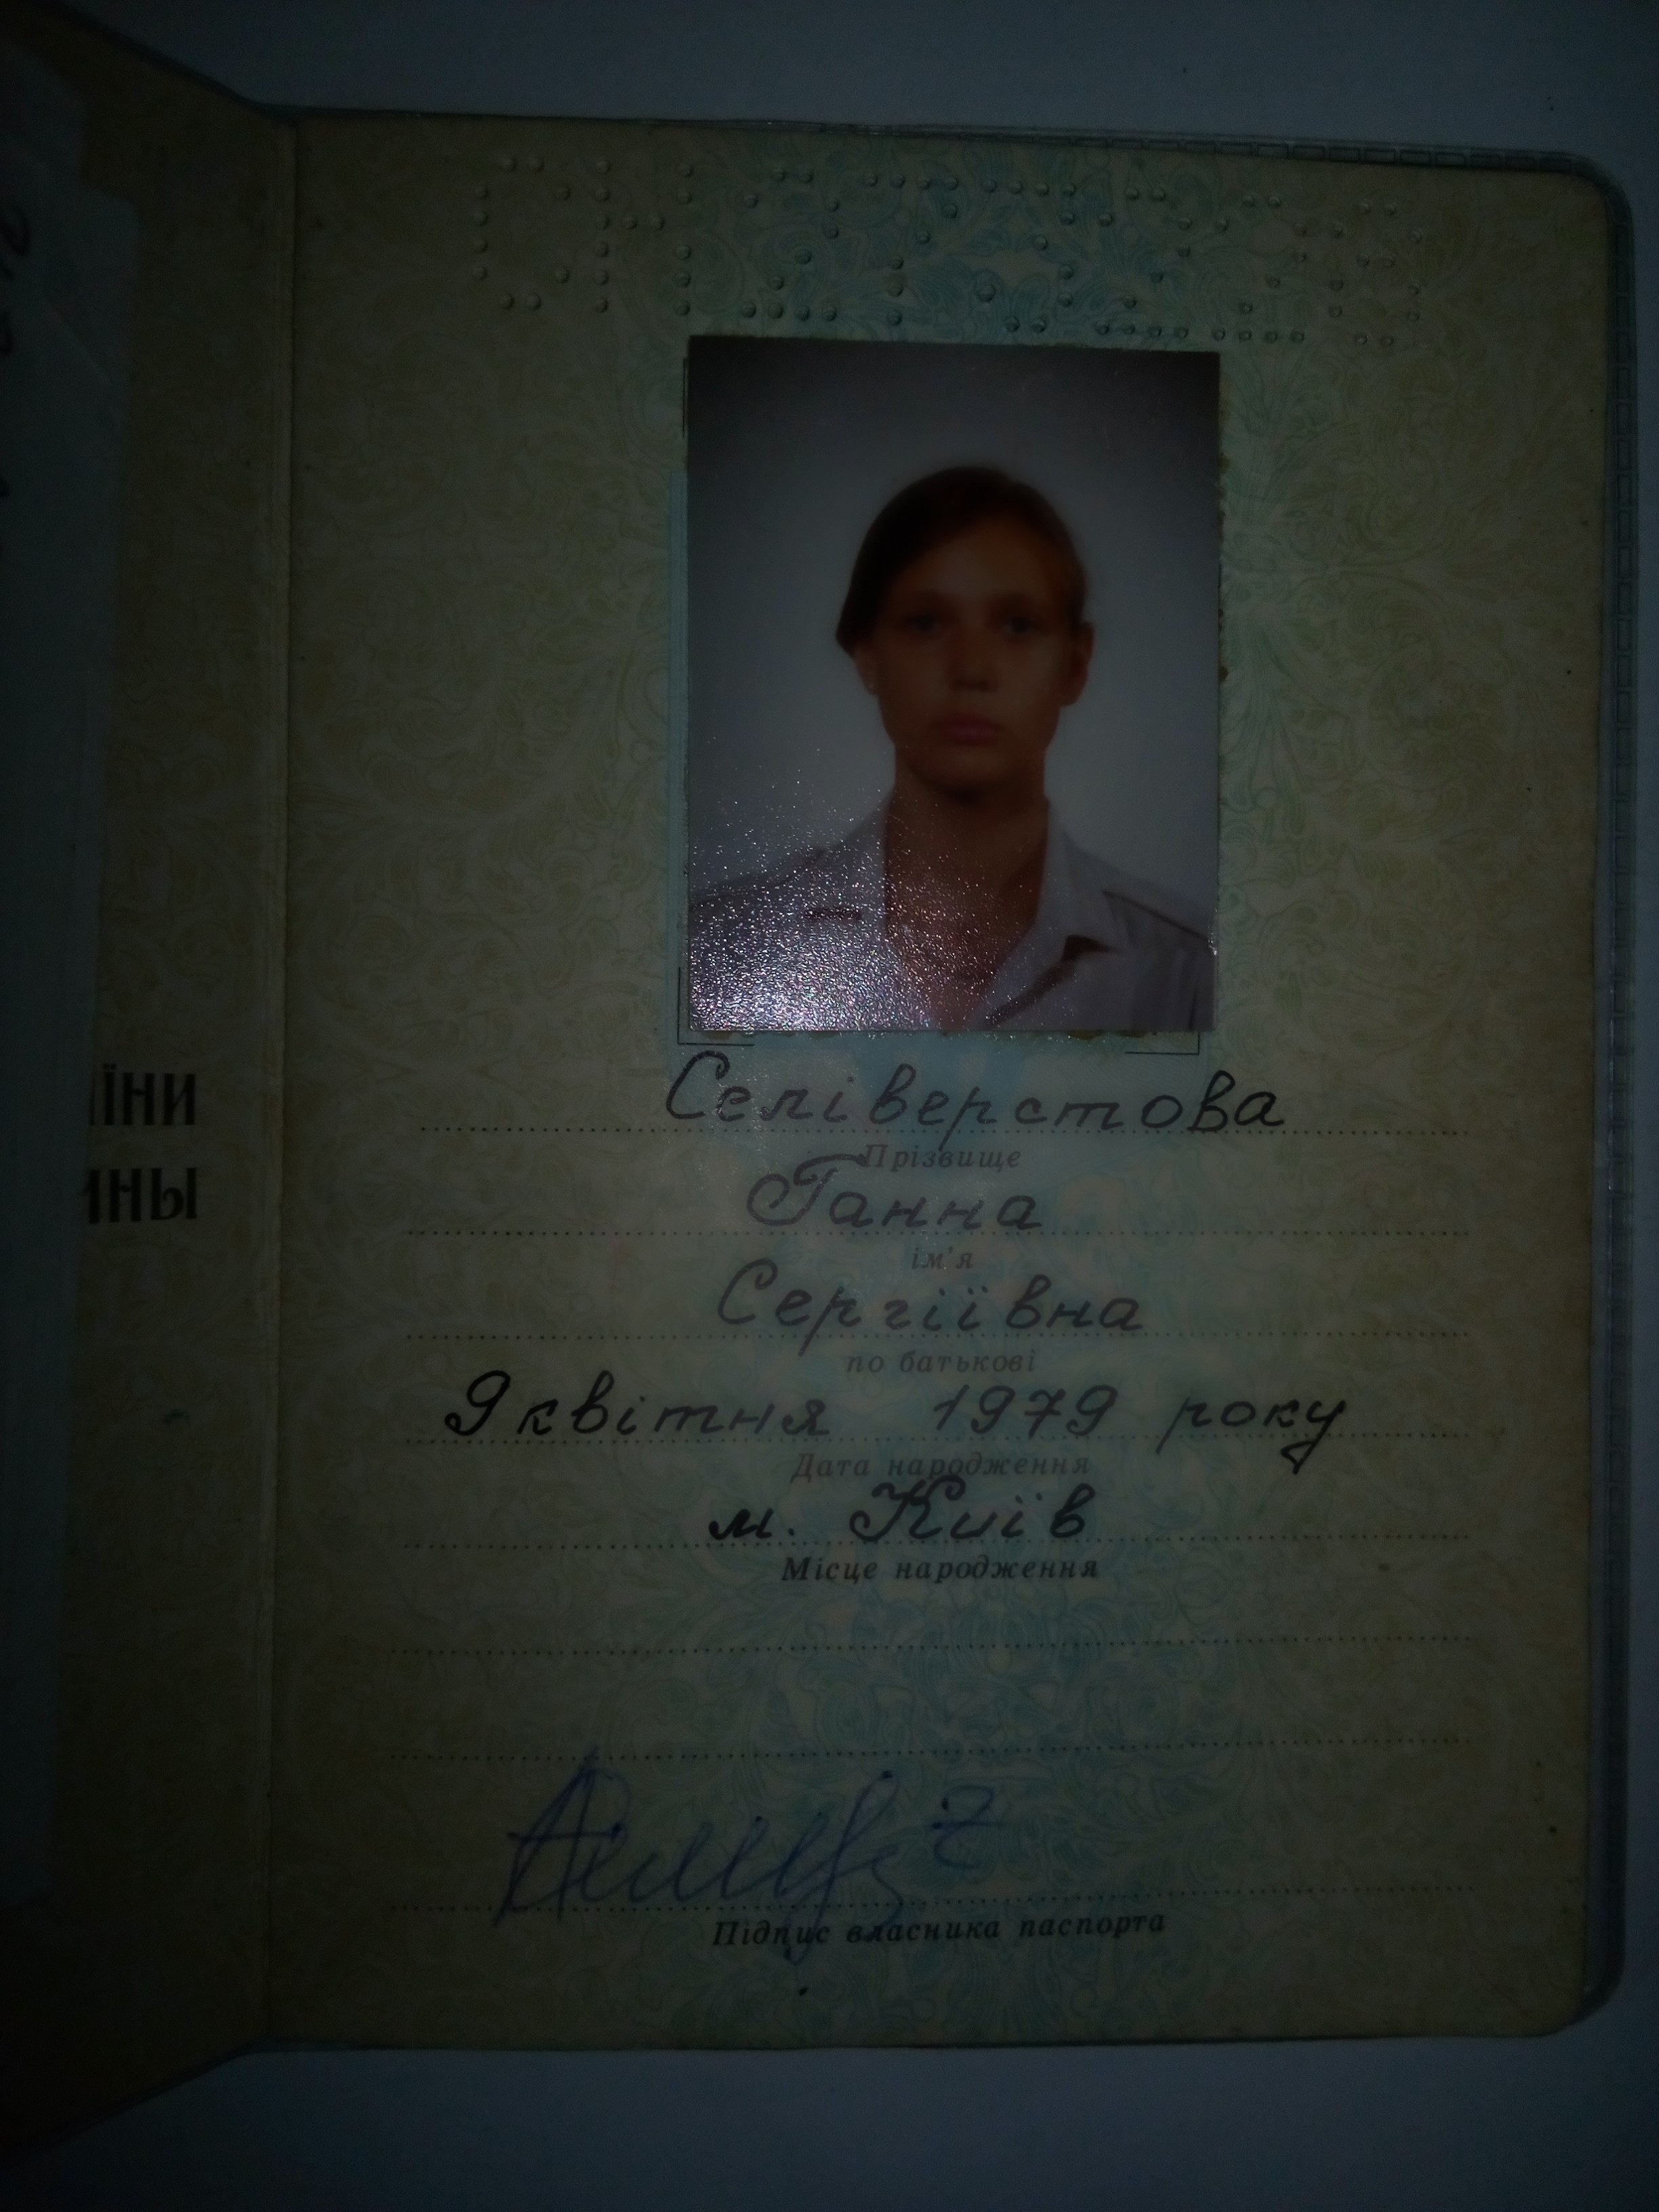 їни
ины
Селіверстова
Прізвище
Ганна
ім'я
Сергіївна
по батькові
9 квітня 1979 року
Дата народження
м. Київ
Місце народження
Підпис власника паспорта